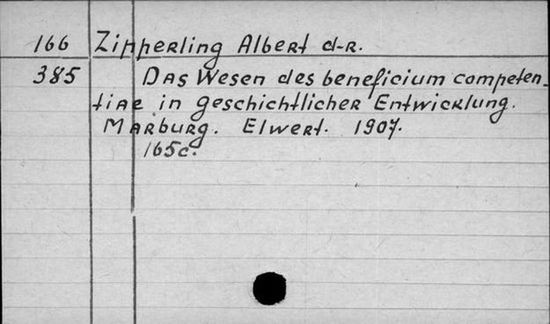 166 Zipperling Albert d-r.
385 Das Wesen des beneficium competen-
tiae in geschichtlicher Entwicklung.
Marburg. Elwert. 1907.
165c.